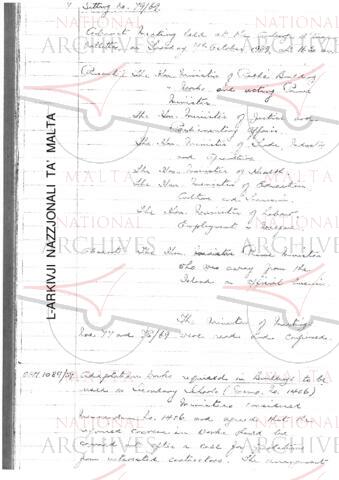 Sitting No. 79/69.
Cabinet Meeting held at the
on 1969, at
Present: The Hon. Minister of Public Building
" Works and acting Prime
Minister.
The Hon. Minister of Justice and
Parliamentary Affairs.
The Hon. Minister of Trade, Industry
and Agriculture
The Hon. Minister of Health.
The Hon. Minister of Education
Culture and Tourism.
The Hon. Minister of Labour
Employment & Welfare.
Absent: The Hon. Prime Minister
who was away from the
Island on official
The Minutes of Meetings
Nos. 77 and 78/69 were read and confirmed.
Adaptation Works required in Buildings to be
used as Secondary Schools (Memo. No. 1456)
Ministers considered
Memorandum No. 1456 and agreed that the
required works should be
carried out after a call for quotations
from interested contractors. The arrangement
L-ARKIVJI NAZZJONALI TA' MALTA
NATIONAL
ARCHIVES
MALTA